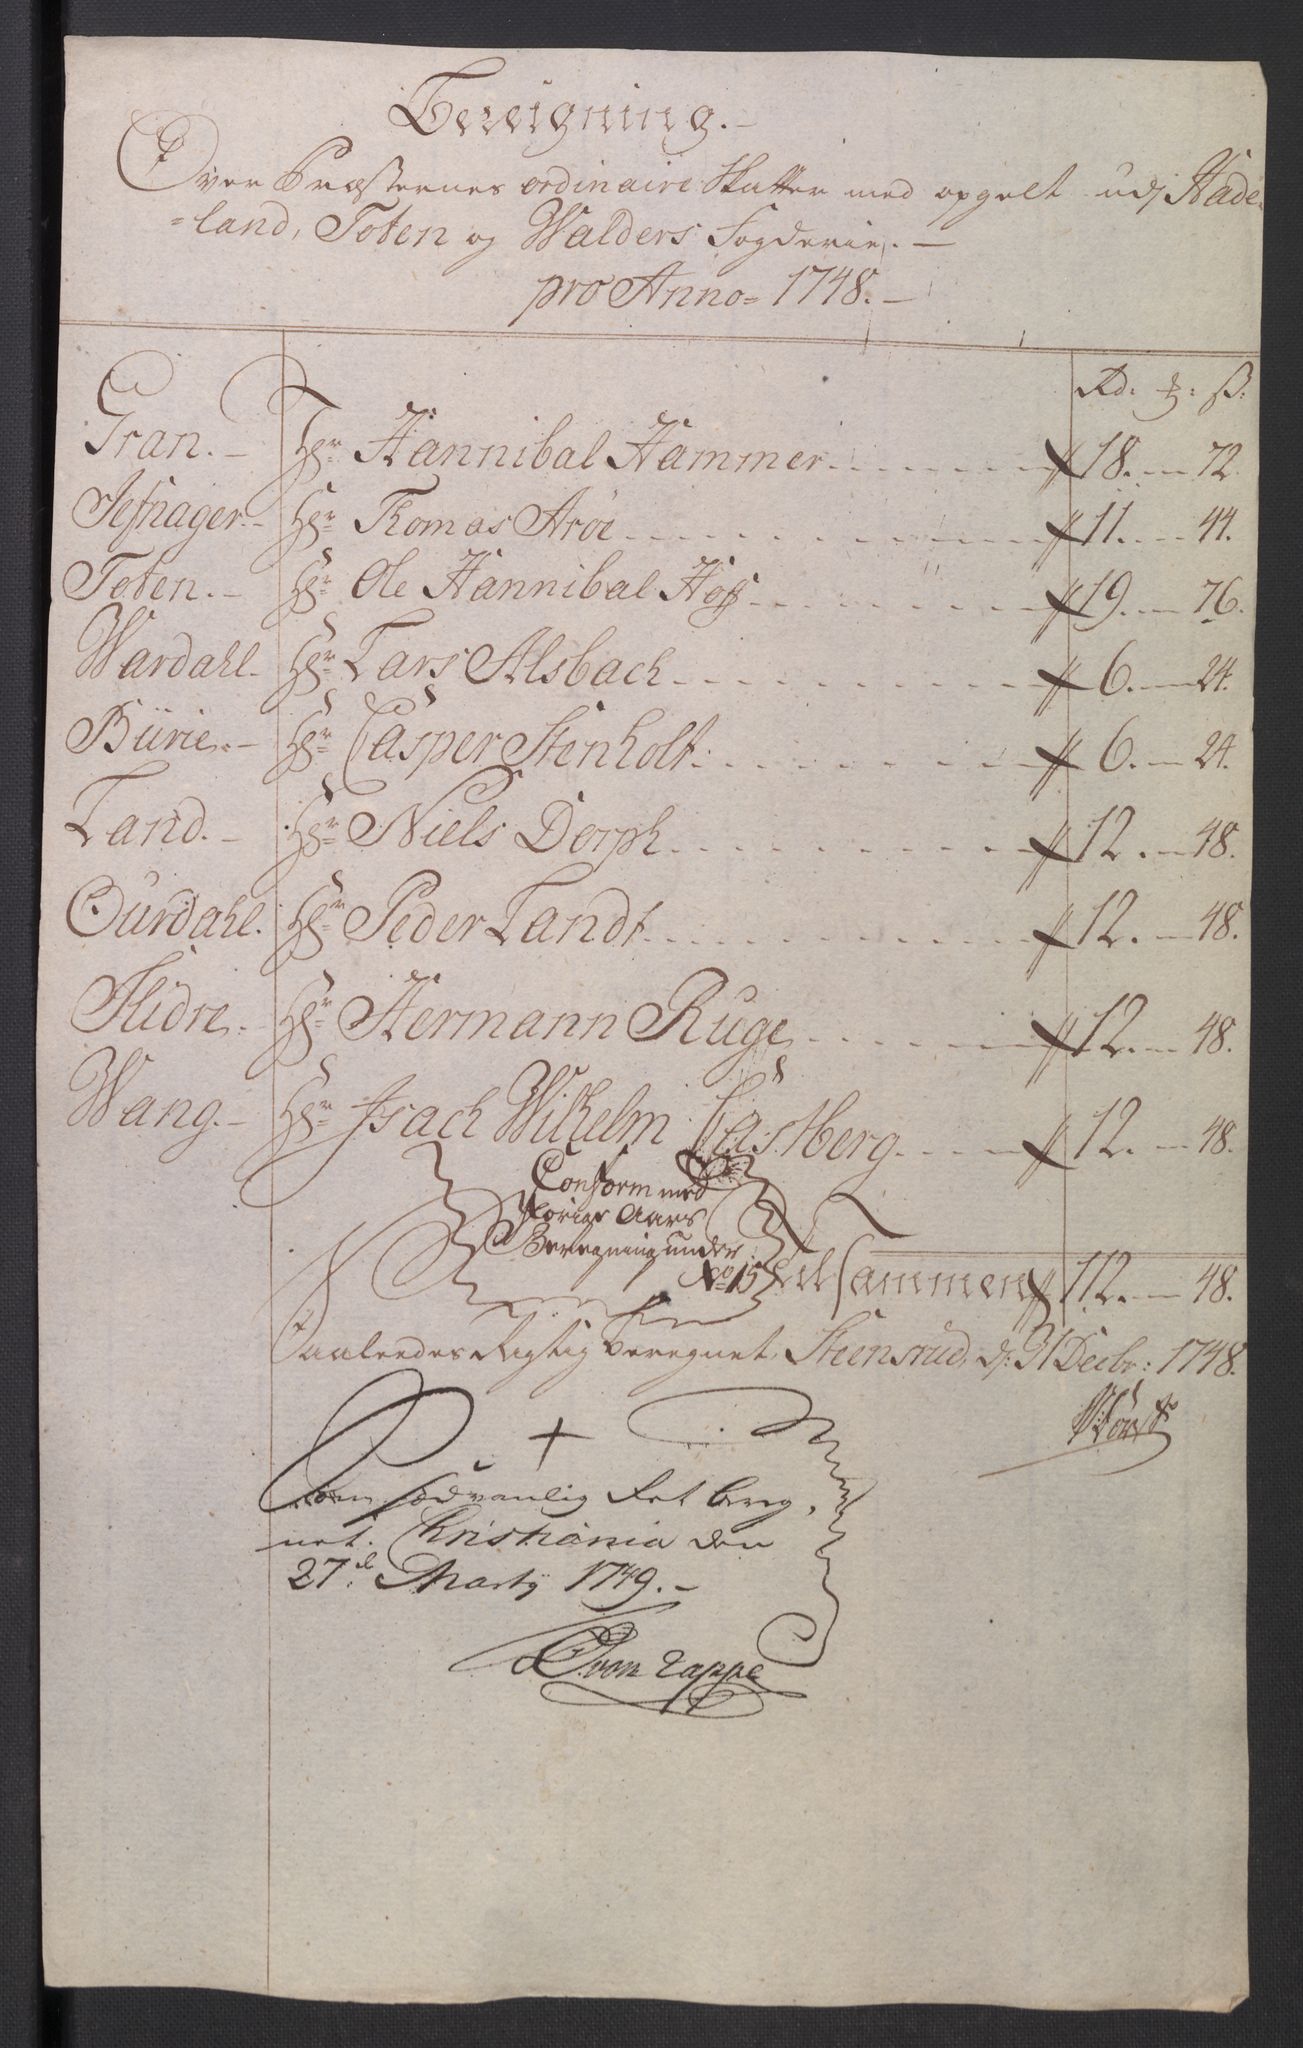 Beregning.-
Over Præsternes ordinaire Skatter med opgelt udj Hade-
=land, Toten og Walders Fogderie. -
pro Anno= 1748.-
Rd. ß:
Gran.- Hr. Hannibal Hammer 18. - 72.
Jefnager.- Hr. Thomas Aröe 11. - 44.
Toten.- Hr. Ole Hannibal Hoff 19. - 76.
Wardahl. Hr. Lars Alsbach 6. - 24.
Biirie.- Hr. Casper Stenholt 6. - 24.
Land.- Hr. Niels Dorph 12. - 48.
Ourdahl. Hr. Peder Landt 12. - 48.
Slidre. Hr. Hermann Ruge 12. - 48.
Wang.- Hr. Isach Wilhelm Castberg 12. - 48.
Conform med
forige Aars
Beregning under
No 15
Tilsammen 112. - 48.
Saaledes Rigtig beregnet, Steensrud, d: 31 Decbr: 1748.
sædvanlig Ret bereg-
net. Christiania den
27.de Martij 1749.-
von Zappe